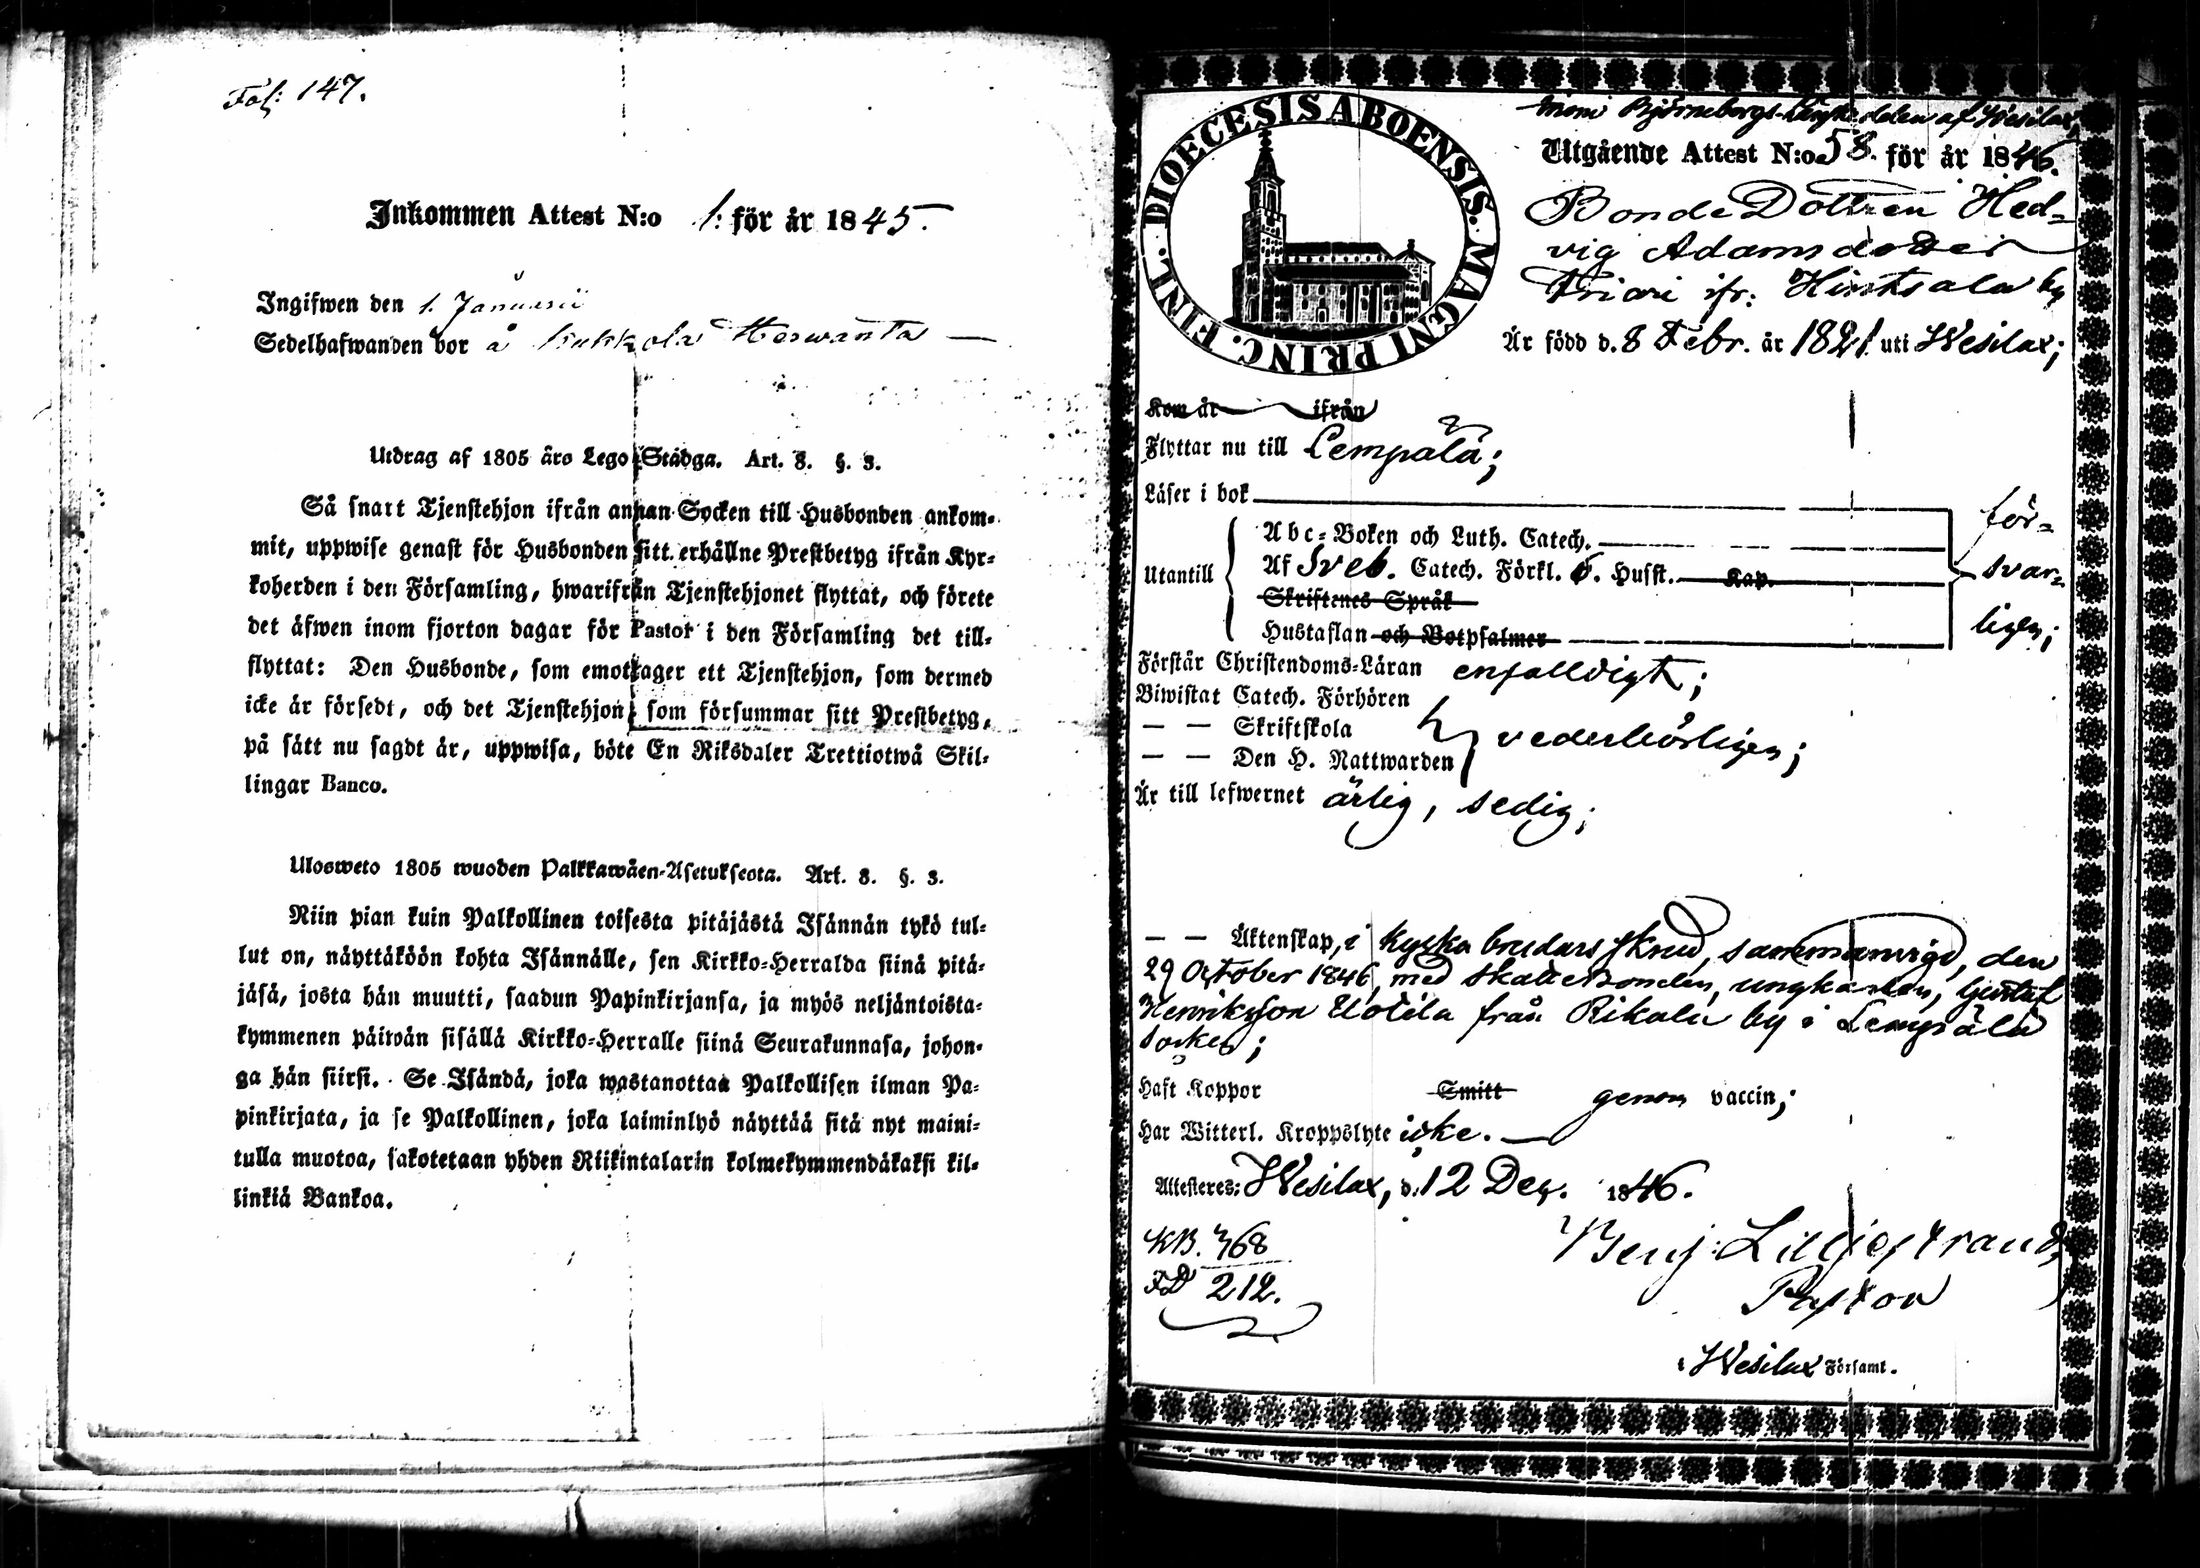 Fol: 147.
Inkommen Attest N:o 1. för år 1845.
Ingifwen den 1. Januarii
Sedelhafwanden bor å Kukkola Herwanta —
Utdrag af 1805 års Lego-Stadga. Art. 8. §. 3.
Så snart Tjenstehjon ifrån annan Socken till Husbonden ankom-
mit, uppwise genast för Husbonden sitt erhållne Prestbetyg ifrån Kyr-
koherden i den Församling, hwarifrån Tjenstehjonet flyttat, och förete
det äfwen inom fjorton dagar för Pastor i den Församling det till-
flyttat: Den Husbonde, som emottager ett Tjenstehjon, som dermed
icke är försedt, och det Tjenstehjon, som försummar sitt Prestbetyg,
på sätt nu sagdt är, uppwisa, böte En Riksdaler Trettiotwå Skil-
lingar Banco.
Ulosweto 1805 wuoden Palkkawäen-Asetuksesta. Art. 8. §. 3.
Niin pian kuin Palkollinen toisesta pitäjästä Isännän tykö tul-
lut on, näyttäköön kohta Isännälle, sen Kirkko-Herralda siinä pitä-
jäsä, josta hän muutti, saadun Papinkirjansa, ja myös neljäntoista-
kymmenen päiwän sisällä Kirkko-Herralle siinä Seurakunnasa, johon-
ga hän siirsi. Se Isändä, joka wastanottaa Palkollisen ilman Pa-
pinkirjata, ja se Palkollinen, joka laiminlyö näyttää sitä nyt maini-
tulla muotoa, sakotetaan yhden Riikintalarin kolmekymmendäkaksi kil-
linkiä Bankoa.
DIOECESIS ABOENSIS. MAGNI PRINC. FINL.
Björneborgs af Wesilax,
Utgående Attest N:o 58. för år 1846.
Bonde Dottren Hed-
vig Adamsdotter
Friari ifr: Hinsala by
Är född d. 8 Febr. år 1821. uti Wesilax;
Kom år ifrån
Flyttar nu till Lempälä;
Läser i bok
Utantill
Abc-Boken och Luth. Catech.
Af Sveb. Catech. Förkl. 6. Husst. Kap.
Skriftenes Språk
Hustaflan och Botpsalmer
för-
svar-
ligen;
Förstår Christendoms-Läran enfalldigt;
Biwistat Catech. Förhören
— — Skriftskola
— — Den H. Nattwarden
vederbörligen;
Är till lefwernet ärlig, sedig;
— — Äktenskap, i kyska brudars skrud, sammanvigd, den
29 October 1846, med skattebonden, ungkarlen, Gustaf
Henriksson Uotila från Rikala by i Lempälä
socken;
Haft Koppor Smitt genom vaccin;
Har Witterl. Kroppslyte icke. —
Attesteres: Wesilax, d. 12 Dec. 1846.
KB. 768
FD 212.
Benj: Lilljestrand,
Pastor
i Wesilax Församl.